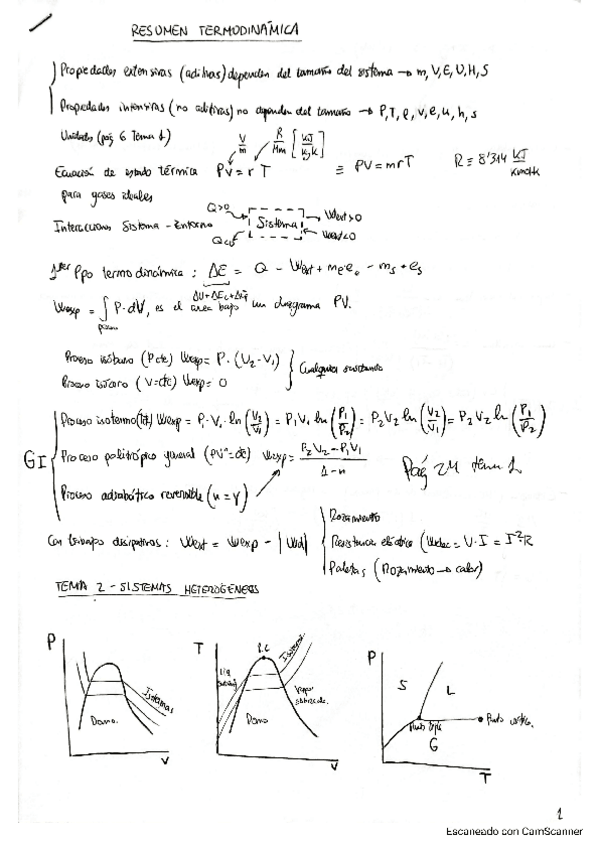 RESUMEN TERMODINÁMICA
Propiedades extensivas (aditivas) dependen del tamaño del sistema → m, V, E, U, H, S
Propiedades intensivas (no aditivas) no dependen del tamaño → P, T, ρ, v, e, u, h, s
Unidades (pág 6 Tema 1)
V/m R/Mm [kJ/kg K]
Ecuación de estado térmica Pv = r T ≡ PV = mrT R = 8'314 kJ/kmol K
para gases ideales
Interacciones Sistema - Entorno Q>0 Sistema Wext>0
Q<0 Wext<0
1er Ppo termodinámica : ΔE = Q - Wext + me ee - ms + es
ΔU+ΔEc+ΔEp
Wexp = ∫ P·dV, es el área bajo un diagrama PV.
proceso
Proceso isóbaro (P cte) Wexp = P·(V2 - V1)
Proceso isócoro (V=cte) Wexp = 0
Cualquier sustancia
GI
Proceso isotermo (T cte) Wexp = P1·V1·ln(V2/V1) = P1V1 ln(P1/P2) = P2V2 ln(V2/V1) = P2V2 ln(P1/P2)
Proceso politrópico general (PVⁿ=cte) Wexp = P2V2 - P1V1 / 1-n
Pág 24 tema 1
Proceso adiabático reversible (n = γ)
Con trabajos disipativos : Wext = Wexp - |Wd|
Rozamiento
Resistencia eléctrica (Welec = V·I = I²R
Paletas (Rozamiento → calor)
TEMA 2 - SISTEMAS HETEROGÉNEOS
P Isotermas Domo. V
T P.C Isobaras Domo Vapor V
P S L Punto triple Punto crítico. G T
1
Escaneado con CamScanner